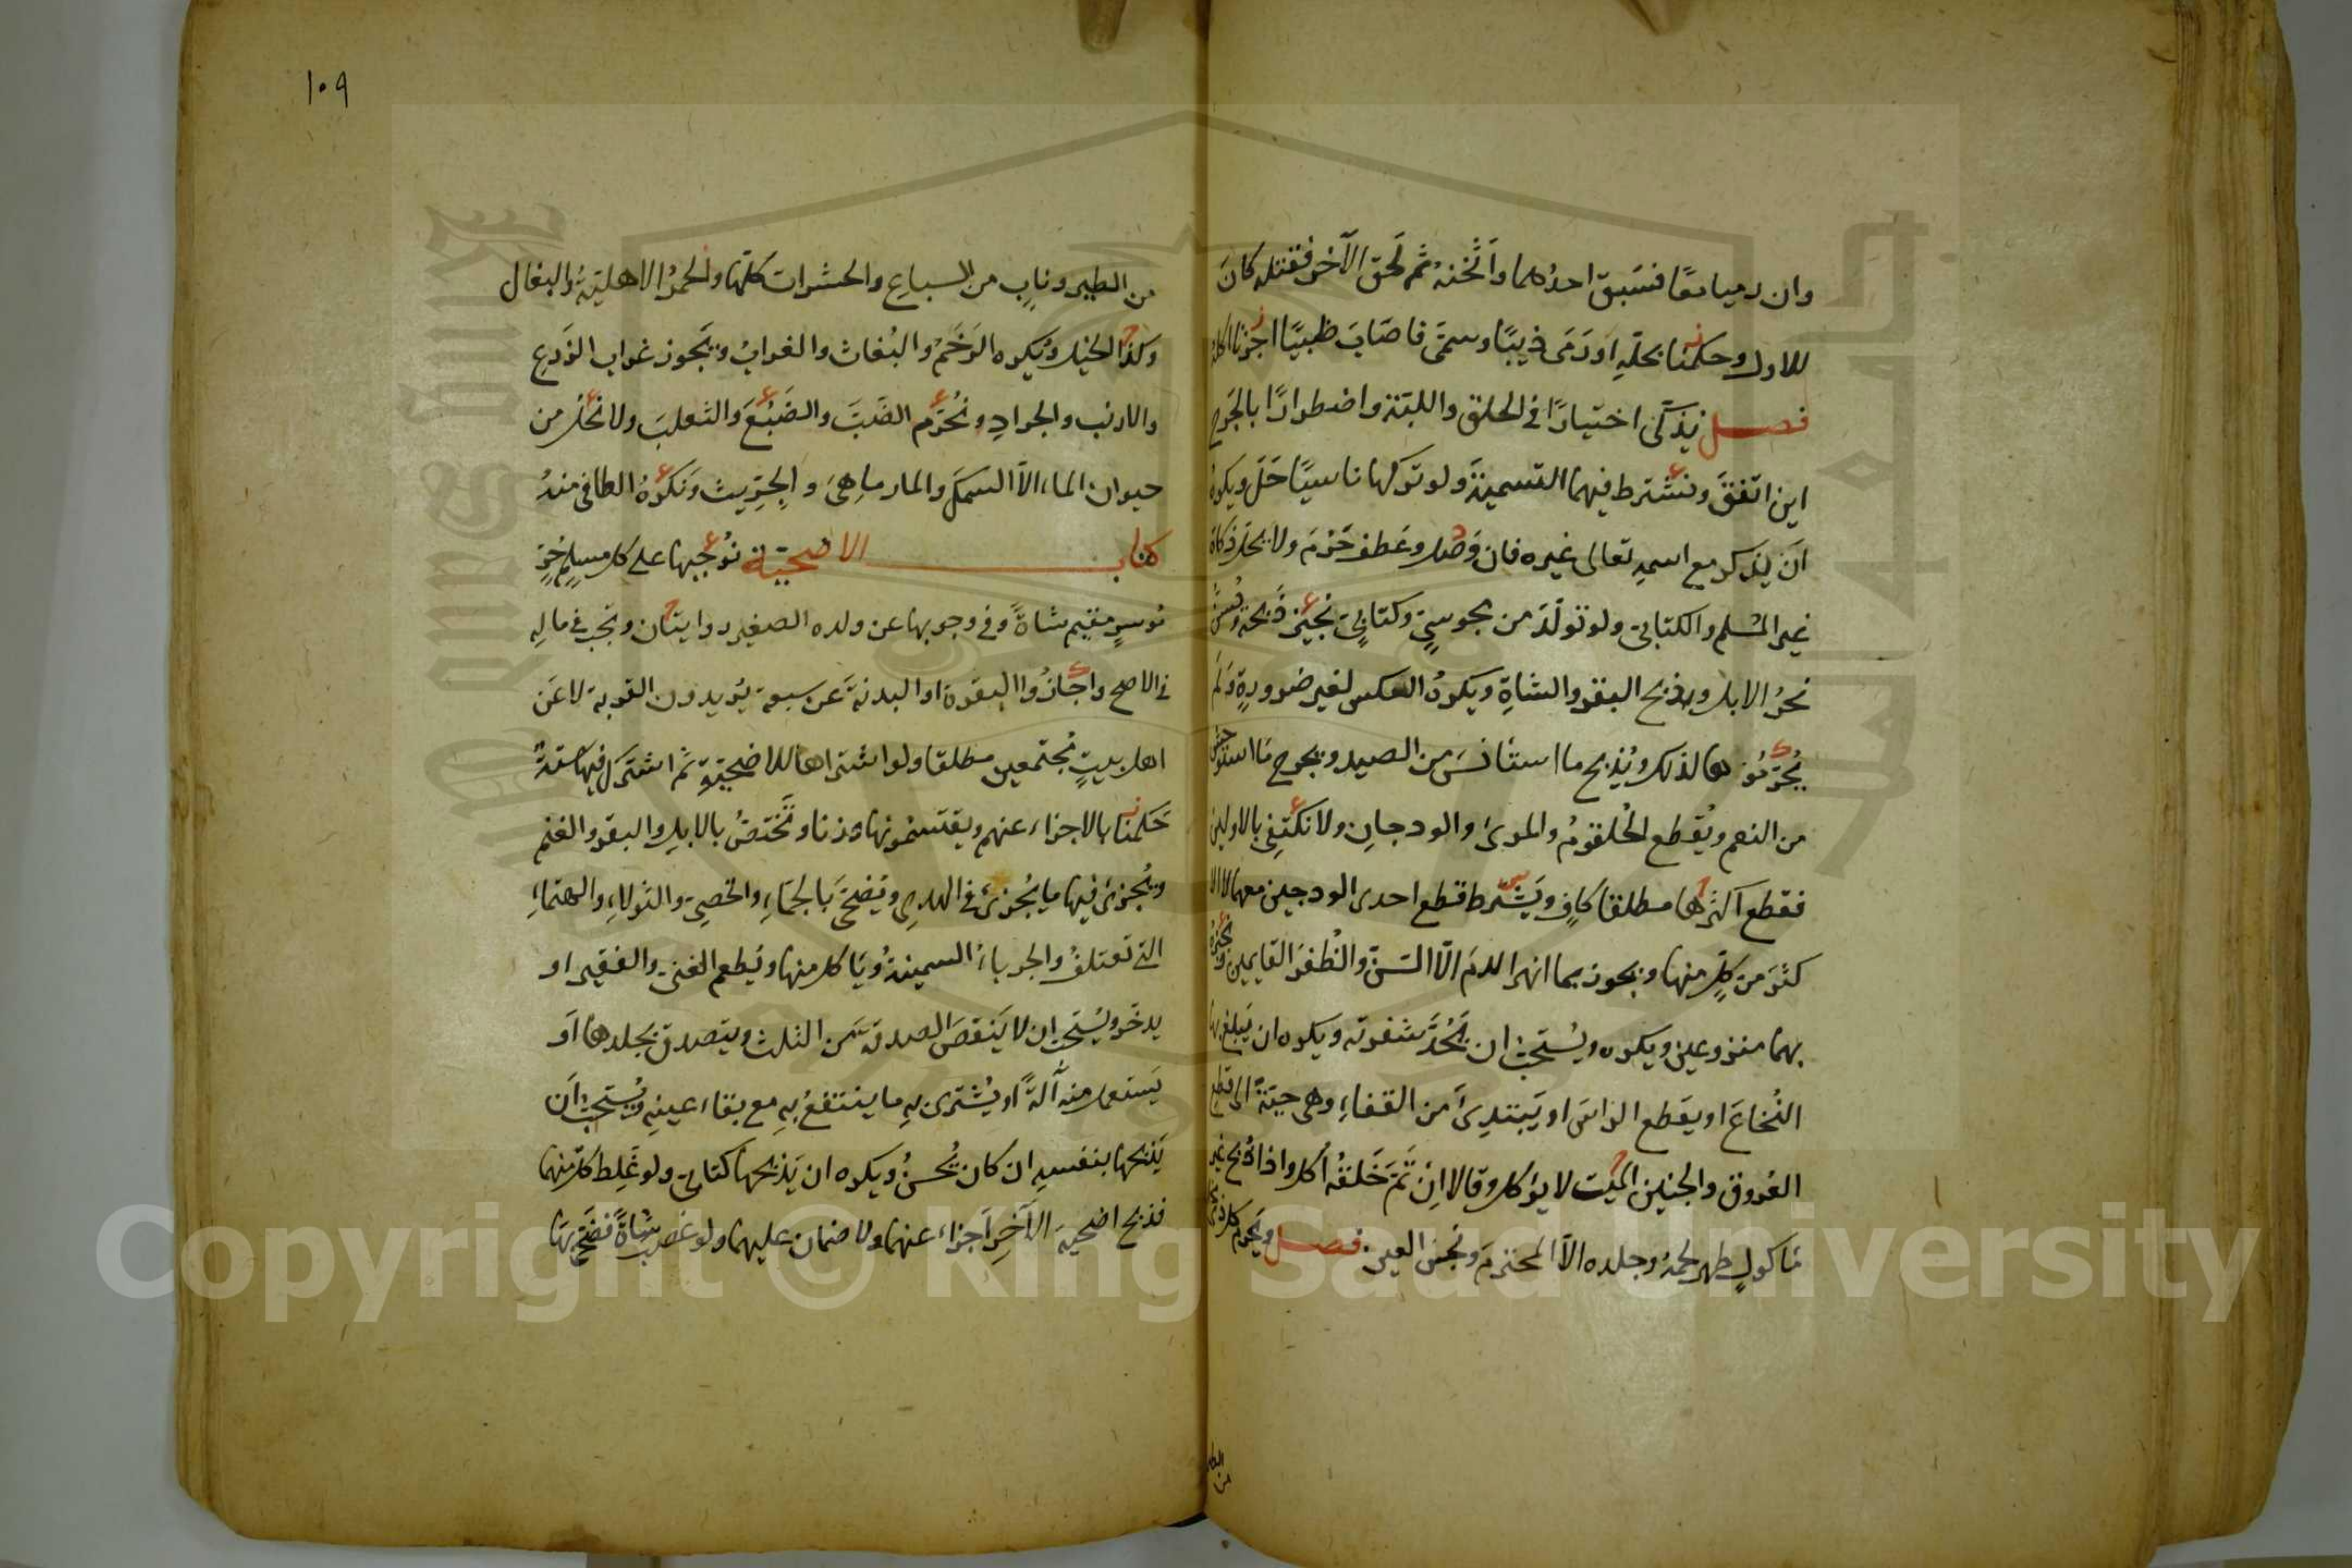 وان رميا معًا فسَبق احدُهما واَثْخَنهُ ثم لَحق الآخر فقتله كانَ
للاول وحكمنا بحلّهِ اورَمَى ذيبًا وسمّى فاصَابَ ظبيًا اجزنا اكلهُ
فصل يُذكّى اختيارًا في الحلق واللبّة واضطرارًا بالجَرح
اين اتفقَ ونشترط فيهما التسميةَ ولو تركها ناسيًا حَلَّ ويكره
اَنْ يذكر مع اسمهِ تعالى غيره فان وَصل وعَطف حَرُمَ ولا يحل ذكاة
غير المُسلم والكتابى ولو تولّدَ من مجوسيٍّ وكتابيٍّ نجيز ذَبحهُ ويُسنّ
نحرُ الابل وذبح البقر والشاةِ ويكرهُ العكس لغير ضرورةٍ ولم
يُحرّموُها لذلك ويُذبح ما استأنسَ من الصيد ويجرح مَا استوحش
من النعم ويُقطع الحُلقومُ والمرئ والودجانِ ولا نكتفِى بالاولين
فقطع اكثرها مطلقا كافٍ ويَشترط قطع احدى الودجين معهما لا الا
كثرَ من كلٍّ منها ويجوز بما انهر الدم الّا السّنّ والظُفرَ القايمين ونجيزهُ
بهما منزوعين ويكره ويُستحبّ ان يُحِدَّ شفرته ويكره ان يَبلغ بها
النُخاعَ او يقطع الراسَ او يَبتدِئَ من القفاءِ وهى حيّةٌ الى قطع
العُروق والجنين الميّت لا يؤكل وقالا اِنْ تَمّ خَلقُه اُكل واذا ذُبح غير
مَاكولٍ طهر لحمهُ وجلده الاّ المحترمَ ونجسَ العين فصل ويَحرم كل ذى مخلب
من الطير ونابٍ من السباعِ والحشرات كلّها والحمرُ الاهليّةُ والبغال
وكذا الخيل ويُكره الرَخَمُ والبُغاث والغرابُ ويَجوز غراب الزَرع
والارنب والجرادِ ونُحرّم الضَبّ والضَبُعَ والثعلبَ ولا نحلّ من
حيوان الماء الاّ السمكَ والمارماهِىَ والجِرّيث ونَكرَهُ الطافى منهُ
كتاب الاضحيّة نُوجبها على كل مسلمٍ حُرٍّ
مُوسرٍ مقيم شاةً وفى وجوبها عن ولده الصغير روايتان وتجب فى مالِهِ
فى الاصح واجازُوا البقرة او البدنةَ عن سبعة يُريدون القربة لا عَن
اهل بيتٍ مُجتمعين مطلقا ولو اشتراها للاضحيّةِ ثم اشترك فيها ستةٌ
حَكمنا بالاجزاء عنهم ويقتسمونها وزنا وتُختصُّ بالابل والبقر والغنم
ويُجزئ فيها ما يُجزئ فى الهدى ويُضحّى بالجمّاءِ والخصِىّ والثولاءِ والهتماءِ
التى تعتلفُ والجرباءُ السمينةُ ويَاكل منها ويُطعم الغنى والفقير او
يدخر ويُستحبّ ان لا يَنقصَ الصدقةَ عن الثلث ويتصدق بجلدها اَو
يَستعمل منه آلةً او يُشترى بهِ ما ينتفعُ بهِ مع بقاء عينِهِ ويُستحبّ اَن
يَذبحها بنفسهِ ان كان يُحسنُ ويكره ان يَذبحها كتابى ولو غَلِط كلّ منهما
فذبح اضحية الآخر اَجزاء عنهما ولا ضمان عليهما ولو غصب شاةً فضحّى بها
١٠٩
Copyright © King Saud University